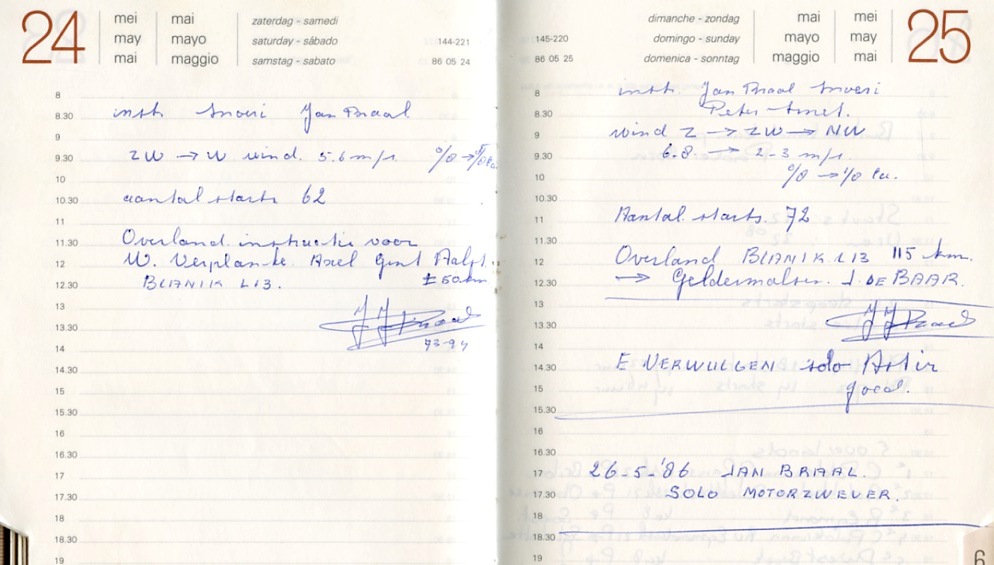 24
mei mai
may mayo
mai maggio
zaterdag - samedi
saturday - sábado
samstag - sabato
144-221
86 05 24
8
8.30 instr. Snoeri Jan Braal
9
9.30 ZW → W wind. 5.6 m/s
10
10.30 aantal starts 62
11
11.30 Overland instructie voor
12 W. Verplanke Axel Gent Aalst.
12.30 BLANIK L13. ± 60 km
13
13.30
14 73-94
14.30
15
15.30
16
16.30
17
17.30
18
18.30
19
145-220
86 05 25
dimanche - zondag
domingo - sunday
domenica - sonntag
mai mei
mayo may
maggio mai
25
8 instr. Jan Braal Snoeri
8.30 Peter Smet.
9 wind Z → ZW → NW
9.30 6.8 → 2-3 m/s.
10
10.30
11 Aantal starts. 72
11.30
12 Overland BLANIK L13 115 km.
12.30 → Geldermalsen. J. DE BAAR.
13
13.30
14
14.30 E VERWULGEN solo Astir
15 goed.
15.30
16
16.30
17 26-5-'86 JAN BRAAL.
17.30 SOLO MOTORZWEVER.
18
18.30
19
6